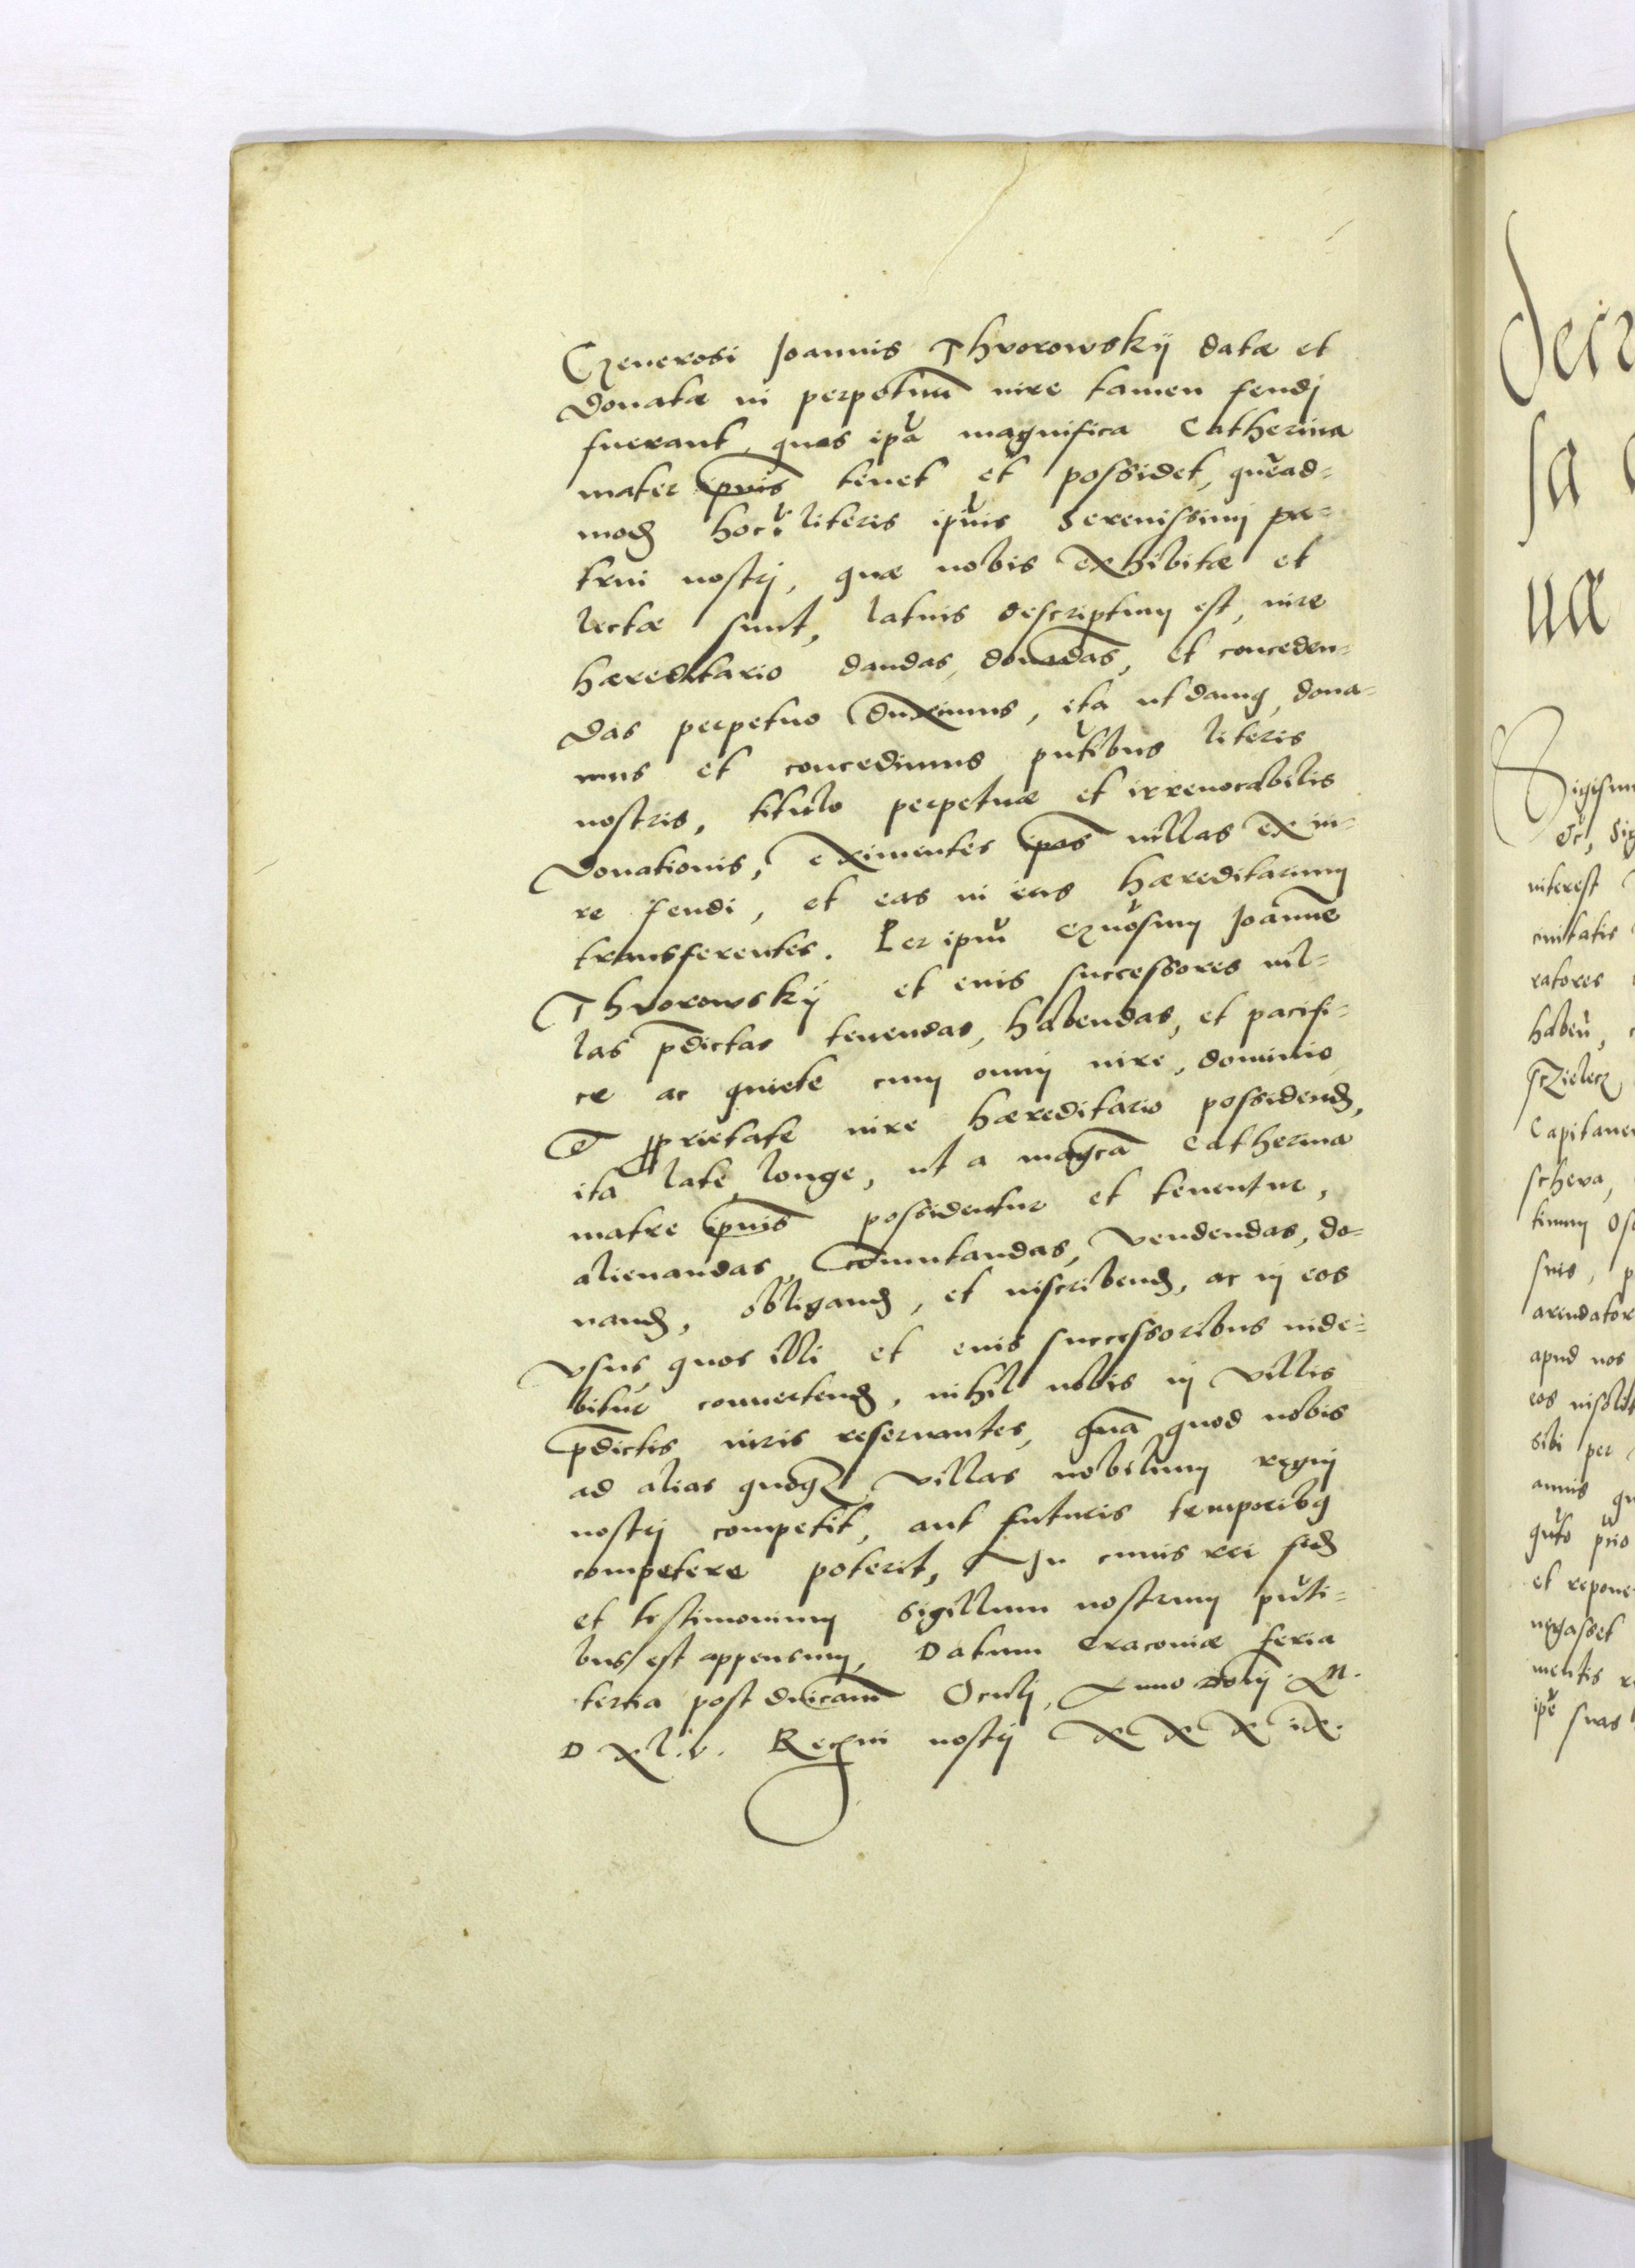 Generosi Joannis Thworowskÿ datæ et
donatæ in perpetuū iure tamen feudj
fuerant, quas ip̃a magnifica Catherina
mater ip̃ius tenet et possidet, quẽad=
mod̃ hoc ĩ literis ip̃ius Serenissimj pa=
trui nostrj, quæ nobis exhibitæ et
lectæ sunt, latius descriptum est, iure
hæreditario dandas, donãdas, et conceden=
das perpetuo duximus, ita ut damꝰ, dona=
mus et concedimus pñtibus literis
nostris, titulo perpetuæ et irreuocabilis
donationis, eximentes ip̃as uillas ex iu=
re feudi, et eas in eius hæreditarium
transferentes. Per ip̃ū Gñosum Joannẽ
Thworowskÿ et euis successores uil=
las p̃dictas tenendas, habendas, et pacifi=
ce ac quiete cum omnj iure, dominio
et ꝓprietate iure hæreditario possidend̃,
ita late, longe, ut a mag̃ca Catherina
matre ip̃ius possidentur et tenentur,
alienandas, com̃utandas, vendendas, do=
nand̃, obligand̃, et inscribend̃, ac in eos
vsus, quos illi et euis successoribus uide=
bitur conuertend̃, nihil nobis in villis
p̃dictis iuris reseruantes, quā quod nobis
ad alias quoqꝫ villas nobilium regni
nostrj competit, aut futuris temporibꝰ
competere poterit, In cuius rei fid̃
et testimonium Sigillum nostrum pñti=
bus est appensum, Datum Cracouiæ feria
tertia post d̃nicam Oculj, Anno Domj M.
D xl.v. Regni nostrj XXXix.

decr
sa
uæ

Sigism
etc̃, Sig
interest
ciuitatis
ratores
habeñ,
scZielecz
Capitane
scheva,
timum Os
suis, p
arendator
apud nos
eos insolit
sibi per
annis qu
quto prio
et repone
negasset
mentis r
ip̃e suas